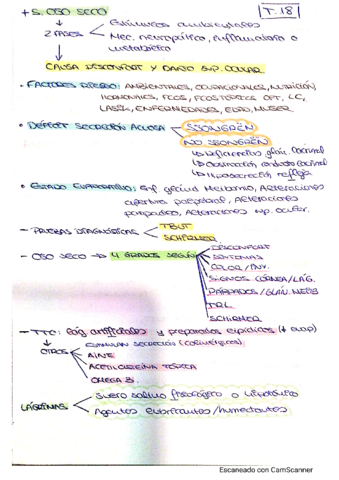 T.18
+ S. OJO SECO
→ Estímulos ambientales
2 FASES → Mec. neuropático, inflamatorio o
metabólico
CAUSA DISCONFORT Y DAÑO SUP. OCULAR
• FACTORES RIESGO: AMBIENTALES, OCUPACIONALES, NUTRICIÓN
HORMONALES, FCOS, FCOS TÓPICOS OFT, LC,
LASIK, ENFERMEDADES, EDAD, MUJER
• DÉFICIT SECRECIÓN ACUOSA
SJÖGREN
NO SJÖGREN
↳ Obstrucción conducto lacrimal
↳ Hiposecreción refleja
• ESTADO EVAPORATIVO: Enf. glánd Meibomio, Alteraciones
apertura palpebral, Alteraciones
parpadeo, Alteraciones sup. ocular.
— PRUEBAS DIAGNÓSTICAS
TBUT
SCHIRMER
— OJO SECO → 4 GRADOS SEGÚN
DISCONFORT
SÍNTOMAS
SIGNOS CÓRNEA/LÁG.
PÁRPADOS/GLÁN. MEIB
SCHIRMER
— TTO: Lág artificiales y preparados lipídicos (↓ evap)
↓ OTROS
Estimulan secreción (colinérgicos)
AINE
ACETILCISTEÍNA TÓPICA
OMEGA 3.
LÁGRIMAS
Suero salino fisiológico o hipotónico
Agentes lubricantes/humectantes
Escaneado con CamScanner